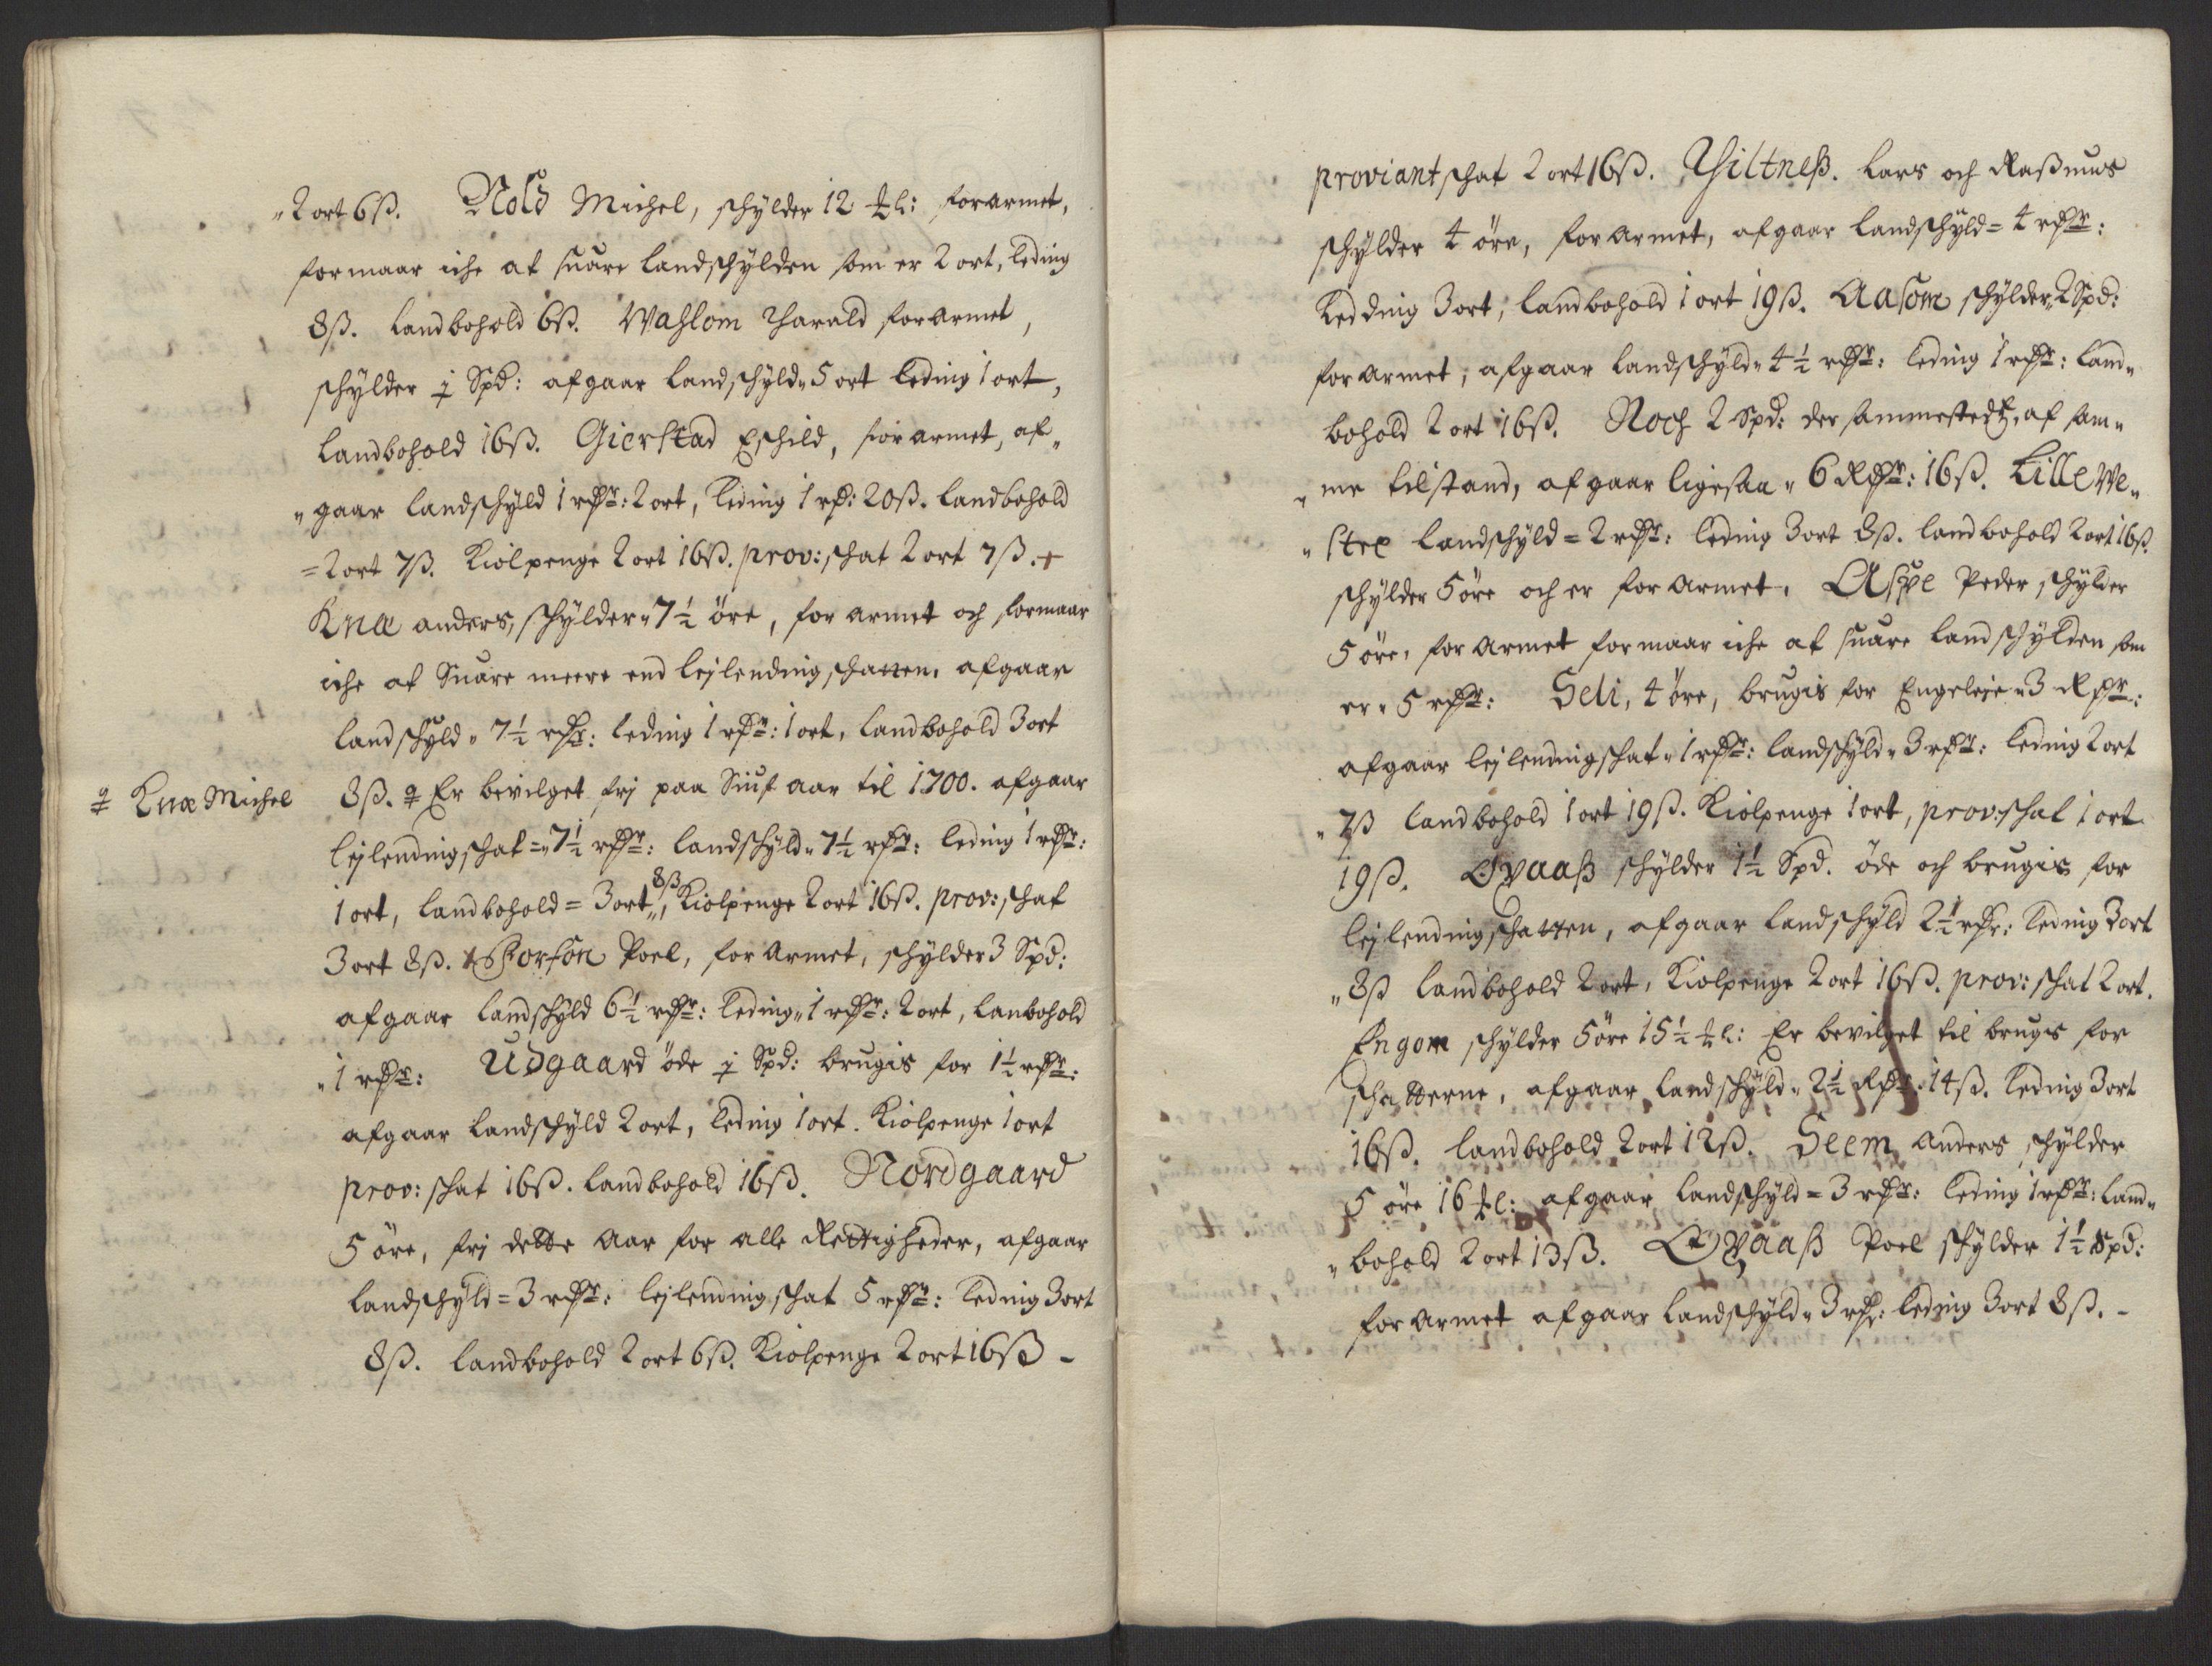 „2 ort 6ß. Nold Michel, schylder 12 ℔l: forarmet,
formaar iche at suare landschylden som er 2 ort, leding
8ß. Landbohold 6ß. Wahlom Harald forarmet,
schylder j Spd: afgaar landschyld„ 5 ort leding 1 ort,
Landbohold 16ß. Gierstad Eschild, forarmet, af„
„gaar landschyld 1 rdr: 2 ort, leding 1 rd: 20ß. landbohold
=2 ort 7ß. Kiolpenge 2 ort 16ß. prov: schat 2 ort 7ß. +
Knæ anders, schylder„ 7½ öre, forarmet och formaar
iche at Suare meere end lejlending schatten, afgaar
landschyld„ 7½ rdr: leding 1 rdr: 1 ort, landbohold 3 ort
8ß. Er bevilget frj paa Siuf aar til 1700. afgaar
Knæ Michel
lejlending schat =„7½ rdr: landschyld„ 7½ rdr: leding 1 rdr:
1 ort, landbohold = 3 ort„ 8ß, Kiolpenge 2 ort 16ß. prov: schat
3 ort 8ß. Poel, forarmet, schylder 3 Spd:
afgaar landschyld 6½ rdr: leding„ 1 rdr: 2 ort, lanbohold
„1 rdr: Udgaard öde j Spd: brugis for 1½ rdr:
afgaar landschyld 2 ort, leding 1 ort. Kiolpenge 1 ort
prov: schat 16ß. landbohold 16ß. Nordgaard
5 öre, frj dette Aar for alle Rettigheder, afgaar
landschyld = 3 rdr: lejlending schat 5 rdr: leding 3 ort
8ß. landbohold 2 ort 6ß. Kiolpenge 2 ort 16ß -
proviantschat 2 ort 16ß. Hiltneß. Lars och Raßmus
schylder 4 öre, forarmet, afgaar landschyld = 4 rdr:
Ledding 3 ort, landbohold 1 ort 19ß. Aasom schylder„ 2 Spd:
forarmet, afgaar landschyld„ 4½ rdr: leding 1 rdr: land„
bohold 2 ort 16ß. Noch 2 Spd: der sammestedz, af sam„
„me tilstand, afgaar ligesaa„ 6 Rdr: 16ß. Lille We„
„stre landschyld = 2 rdr: leding 3 ort 8ß. landbohold 2 ort 16ß.
schylder 5 öre och er forarmet. Aspe Peder schylder
5 öre, forarmet formaar iche at suare landschylden som
er„ 5 rdr: Seli, 4 öre, brugis for Engeleje„ 3 Rdr:
afgaar lejlending schat„ 1 rdr: landschyld„ 3 rdr: leding 2 ort
„7ß landbohold 1 ort 19ß. Kiolpenge 1 ort, prov: schat 1 ort
19ß. Øvaaß schylder 1½ Spd. öde och brugis for
lejlending schatten, afgaar landschyld 2½ rdr: leding 3 ort
„8ß landbohold 2 ort, Kiolpenge 2 ort 16ß. prov: schat 2 ort.
Engom schylder 5 öre 15½ ℔l: Er bevilget til brugs for
schatterne, afgaar landschyld„ 2½ Rdr: 14ß. leding 3 ort
16ß. landbohold 2 ort 12ß. Seem Anders schylder
5 öre 16 ℔l: afgaar landschyld = 3 rdr: leding 1 rdr: land„
„bohold 2 ort 13ß. Øvaaß Poel schylder 1½ Spd:
forarmet afgaar landschyld„ 3 rdr: leding 3 ort 8ß. -